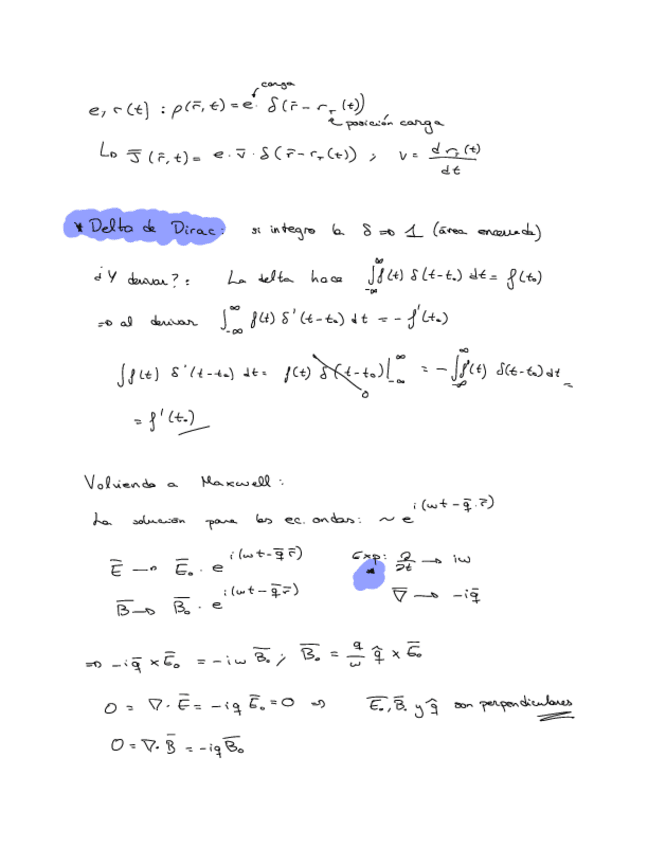 carga
e, r(t) : ρ(r̄, t) = e · δ(r̄ - r_r(t))
posición carga
↳ J̄(r̄, t) = e · v̄ · δ(r̄ - r_r(t)) ; v = d r_r(t) / dt
* Delta de Dirac: si integro la δ ⇒ 1 (área encerrada)
¿Y derivar?: La delta hace ∫_{-∞}^{∞} f(t) δ(t-t₀) dt = f(t₀)
⇒ al derivar ∫_{-∞}^{∞} f(t) δ'(t-t₀) dt = - f'(t₀)
∫ f(t) δ'(t-t₀) dt = f(t) δ(t-t₀) |_{-∞}^{∞} = - ∫_{-∞}^{∞} f'(t) δ(t-t₀) dt =
0
= f'(t₀)
Volviendo a Maxwell:
La solución para las ec. ondas: ~ e^{i(ωt - q̄·r̄)}
Ē → Ē₀ · e^{i(ωt - q̄ r̄)} Exp: ∂/∂t → iω
B̄ → B̄₀ · e^{i(ωt - q̄ r̄)} ∇ → -iq̄
⇒ -iq̄ × Ē₀ = -iω B̄₀ ; B̄₀ = q/ω q̂ × Ē₀
0 = ∇ · Ē = -iq Ē₀ = 0 ⇒ Ē₀, B̄₀ y q̂ son perpendiculares
0 = ∇ · B̄ = -iq B̄₀